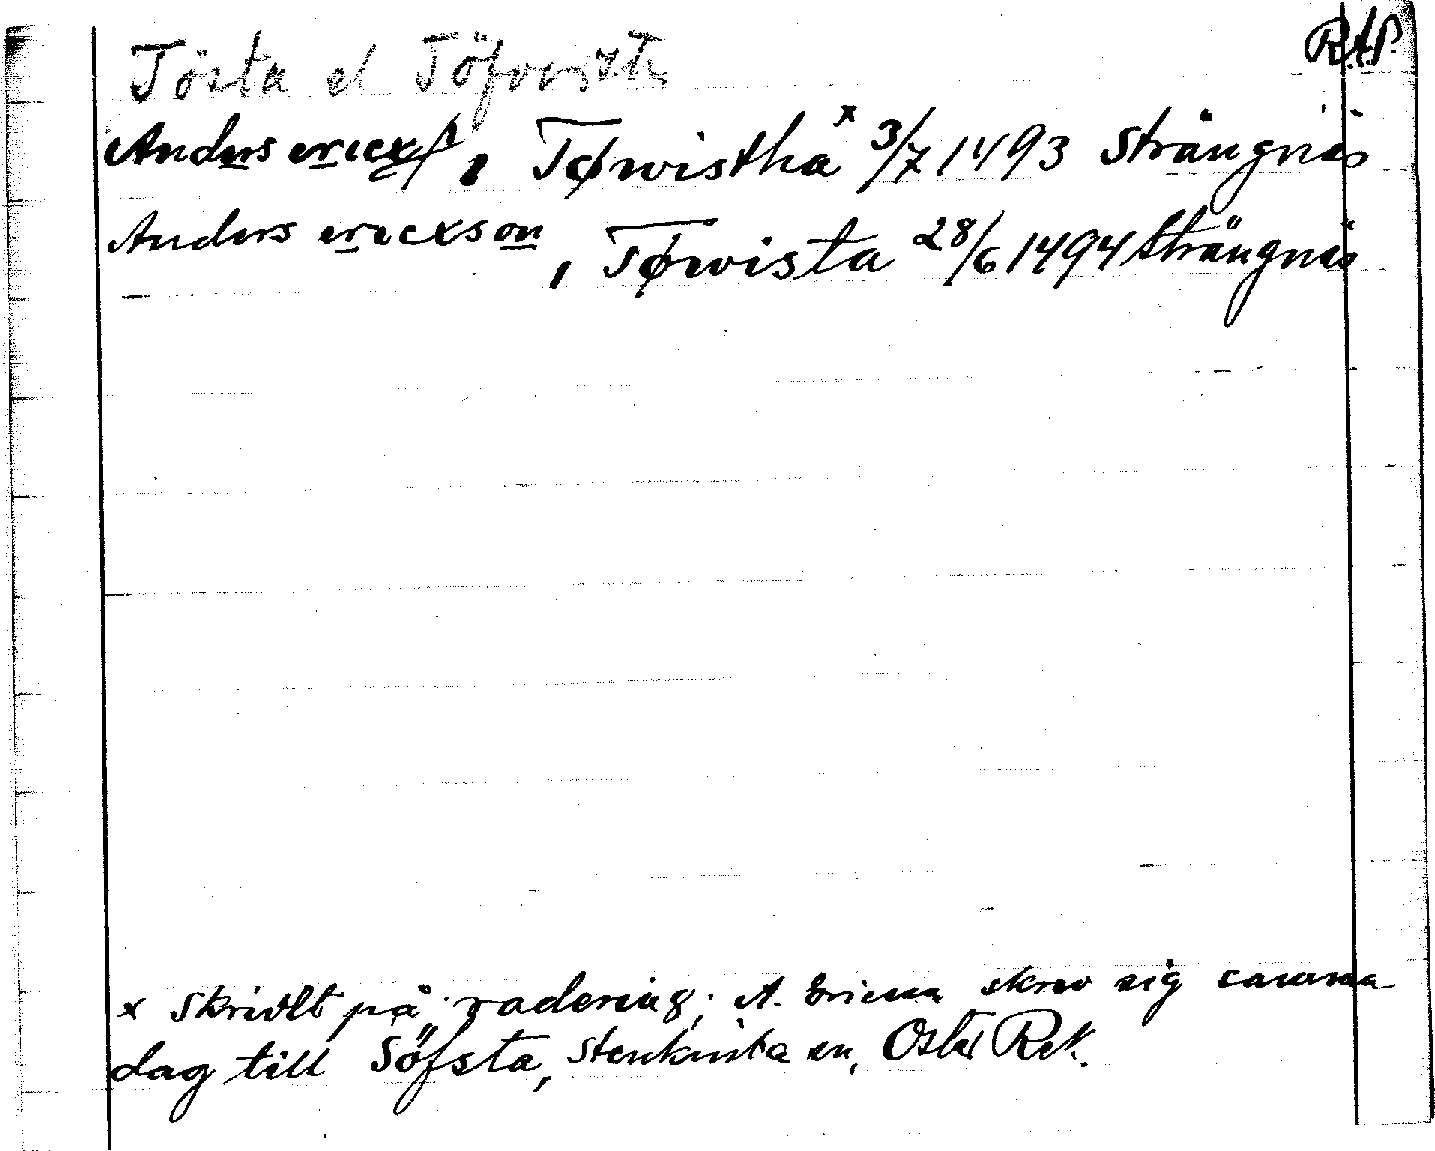 RAP.
Tösta el Töfvista
Anders ericx , Tøwistha x 3/7 1493 Strängnäs
Anders erickson , Tøwista 28/6 1494 Strängnäs
x Skrivet på radering; A. skrev sig samma
dag till Söfsta, Stenkvista sn, Öster Rek.